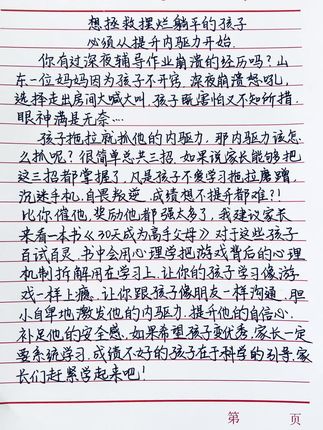 想拯救摆烂躺平的孩子
必须从提升内驱力开始.
你有过深夜辅导作业崩溃的经历吗?山
东一位妈妈因为孩子不开窍.深夜崩溃想吼,
选择走出房间大喊大叫.孩子既害怕又不知所措.
眼神满是无奈....
孩子拖拉就抓他的内驱力.那内驱力该怎
么抓呢?很简单总共三招.如果说家长能够把
这三招都掌握了,凡是孩子不爱学习拖拉磨蹭,
沉迷手机,自畏叛逆.成绩想不提升都难?!
比你催他,奖励他都强太多了,我建议家长
来看一本书《30天成为高手父母》对于这些孩子
百试百灵.书中会用心理学把游戏背后的心理
机制拆解用在学习上.让你的孩子学习像游
戏一样上瘾.让你跟孩子像朋友一样沟通.胆
小自卑地激发他的内驱力.提升他的自信心.
补足他的安全感.如果希望孩子变优秀.家长一定
要系统学习.成绩不好的孩子在于科学的引导.家
长们赶紧学起来吧!
第 页